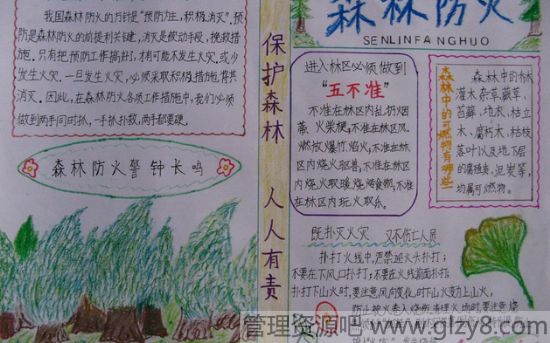 我国森林防火的方针是"预防为主,积极消灭"。预
防是森林防火的前提和关键,消灭是被动手段,挽救措
施。只有把预防工作搞好,才有可能不发生火灾或少
发生火灾。一旦发生火灾,必须采取积极措施,将其
消灭。因此,在森林防火各项工作措施中,我们必须
做到两手同时抓,一手抓扑救,两手都要硬。
森林防火警钟长鸣
保护森林 人人有责
森林防火
SENLINFANGHUO
进入林区必须做到
"五不准"
不准在林区内乱扔烟
蒂、火柴梗,不准在林区风
燃放爆竹,焰火,不准在林
区内烧火驱兽,不准在林
区内烧火取暖,烧烤食物,不准
在林区内玩火取乐。
森林中的可燃物有哪些
森林中的乔木
灌木、杂草、蕨草、
苔藓、地衣、枯立
木、腐朽木、枯枝
落叶以及地下层
的腐殖质、泥炭等,
均属可燃物。
既扑灭火灾 又不伤亡人员
扑打火线中,严禁迎火头扑打;
不要在下风口扑打;不要在火线前面扑打;
扑打下山火时,要注意风向变化,时下山火变为上山火,
管理资源吧 www.glzy8.com